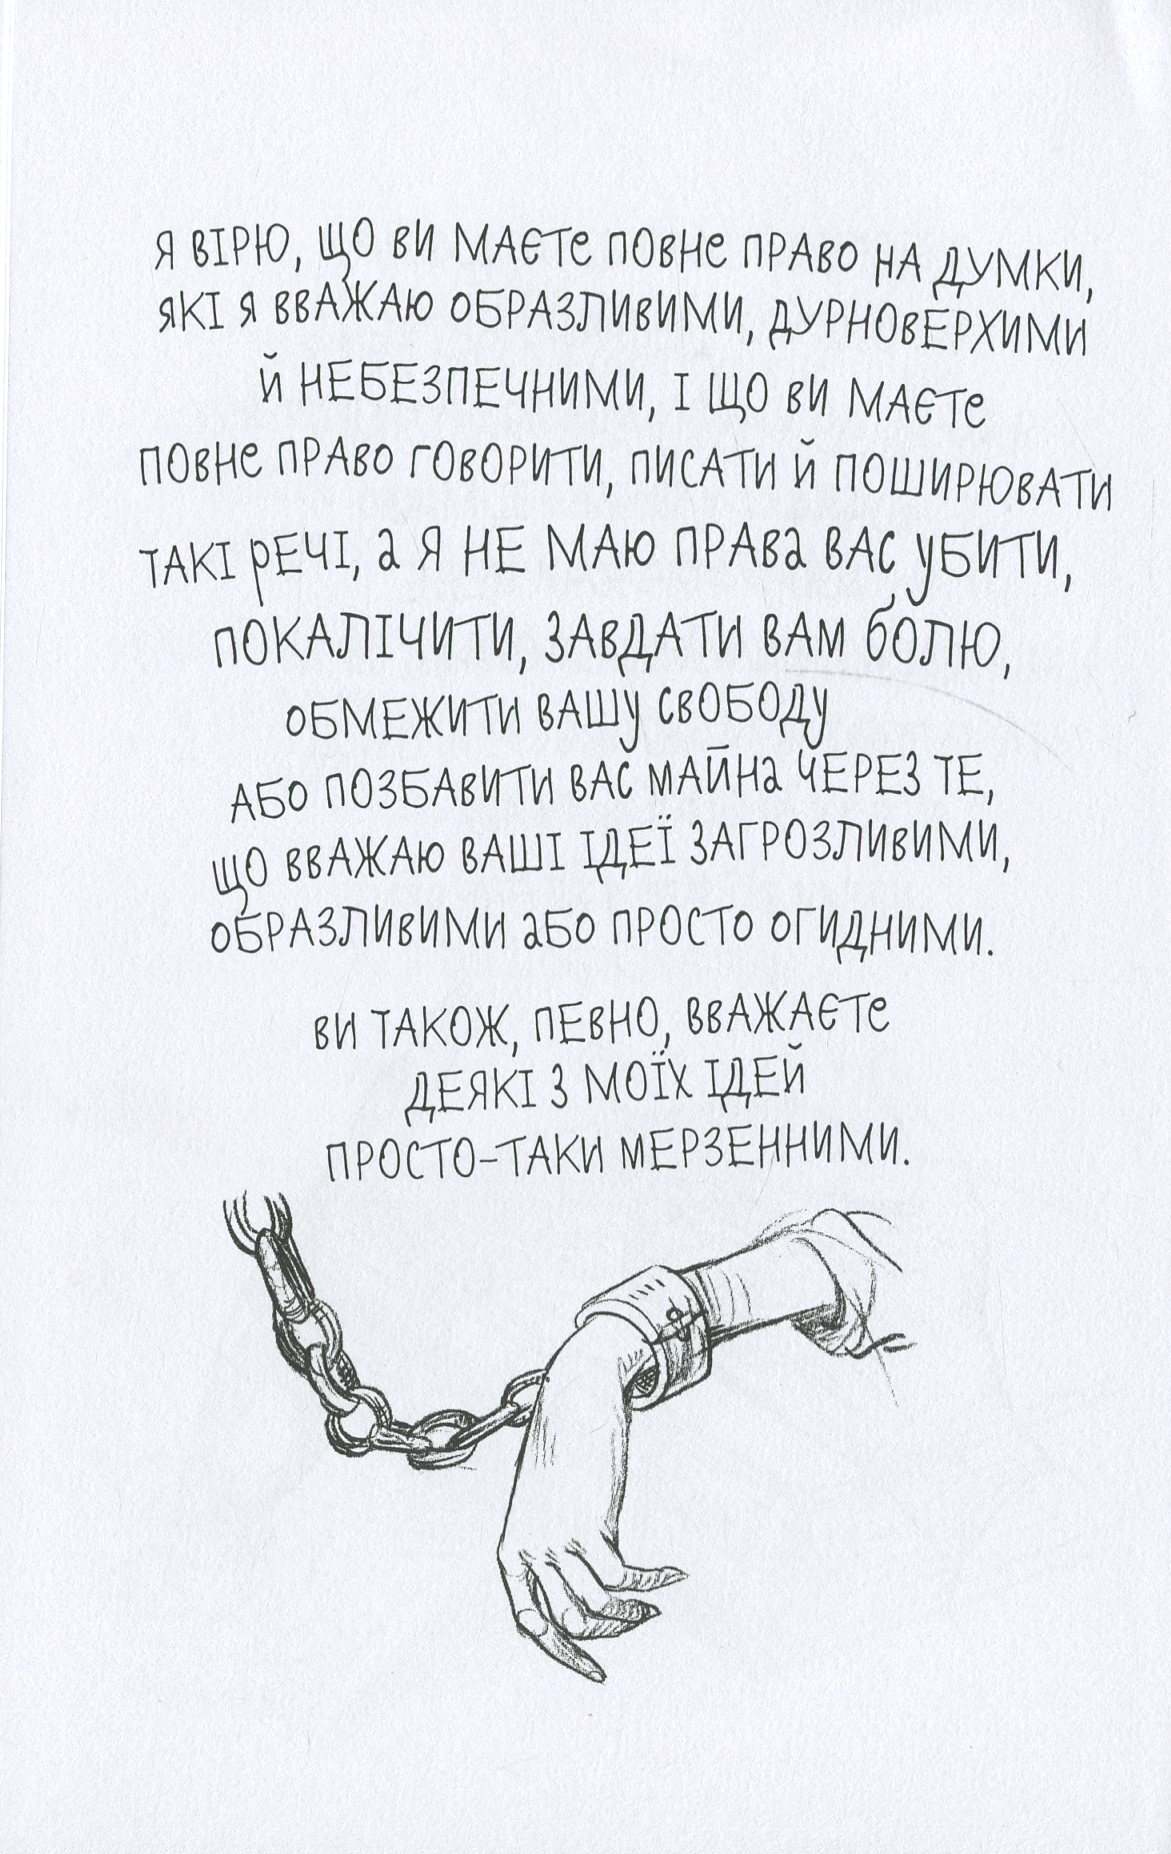 Я ВІРЮ, ЩО ВИ МАЄТЕ ПОВНЕ ПРАВО НА ДУМКИ,
ЯКІ Я ВВАЖАЮ ОБРАЗЛИВИМИ, ДУРНОВЕРХИМИ
Й НЕБЕЗПЕЧНИМИ, І ЩО ВИ МАЄТЕ
ПОВНЕ ПРАВО ГОВОРИТИ, ПИСАТИ Й ПОШИРЮВАТИ
ТАКІ РЕЧІ, А Я НЕ МАЮ ПРАВА ВАС УБИТИ,
ПОКАЛІЧИТИ, ЗАВДАТИ ВАМ БОЛЮ,
ОБМЕЖИТИ ВАШУ СВОБОДУ
АБО ПОЗБАВИТИ ВАС МАЙНА ЧЕРЕЗ ТЕ,
ЩО ВВАЖАЮ ВАШІ ІДЕЇ ЗАГРОЗЛИВИМИ,
ОБРАЗЛИВИМИ АБО ПРОСТО ОГИДНИМИ.
ВИ ТАКОЖ, ПЕВНО, ВВАЖАЄТЕ
ДЕЯКІ З МОЇХ ІДЕЙ
ПРОСТО-ТАКИ МЕРЗЕННИМИ.